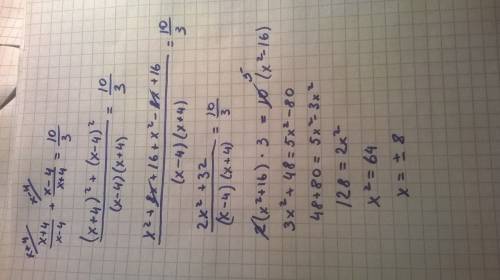 x+4 x-4
x+4/x-4 + x-4/x+4 = 10/3
(x+4)²+(x-4)²/(x-4)(x+4) = 10/3
x²+8x+16+x²-8x+16/(x-4)(x+4) = 10/3
2x²+32/(x-4)(x+4) = 10/3
2(x²+16)·3 = 10 5 (x²-16)
3x²+48=5x²-80
48+80=5x²-3x²
128=2x²
x²=64
x=±8